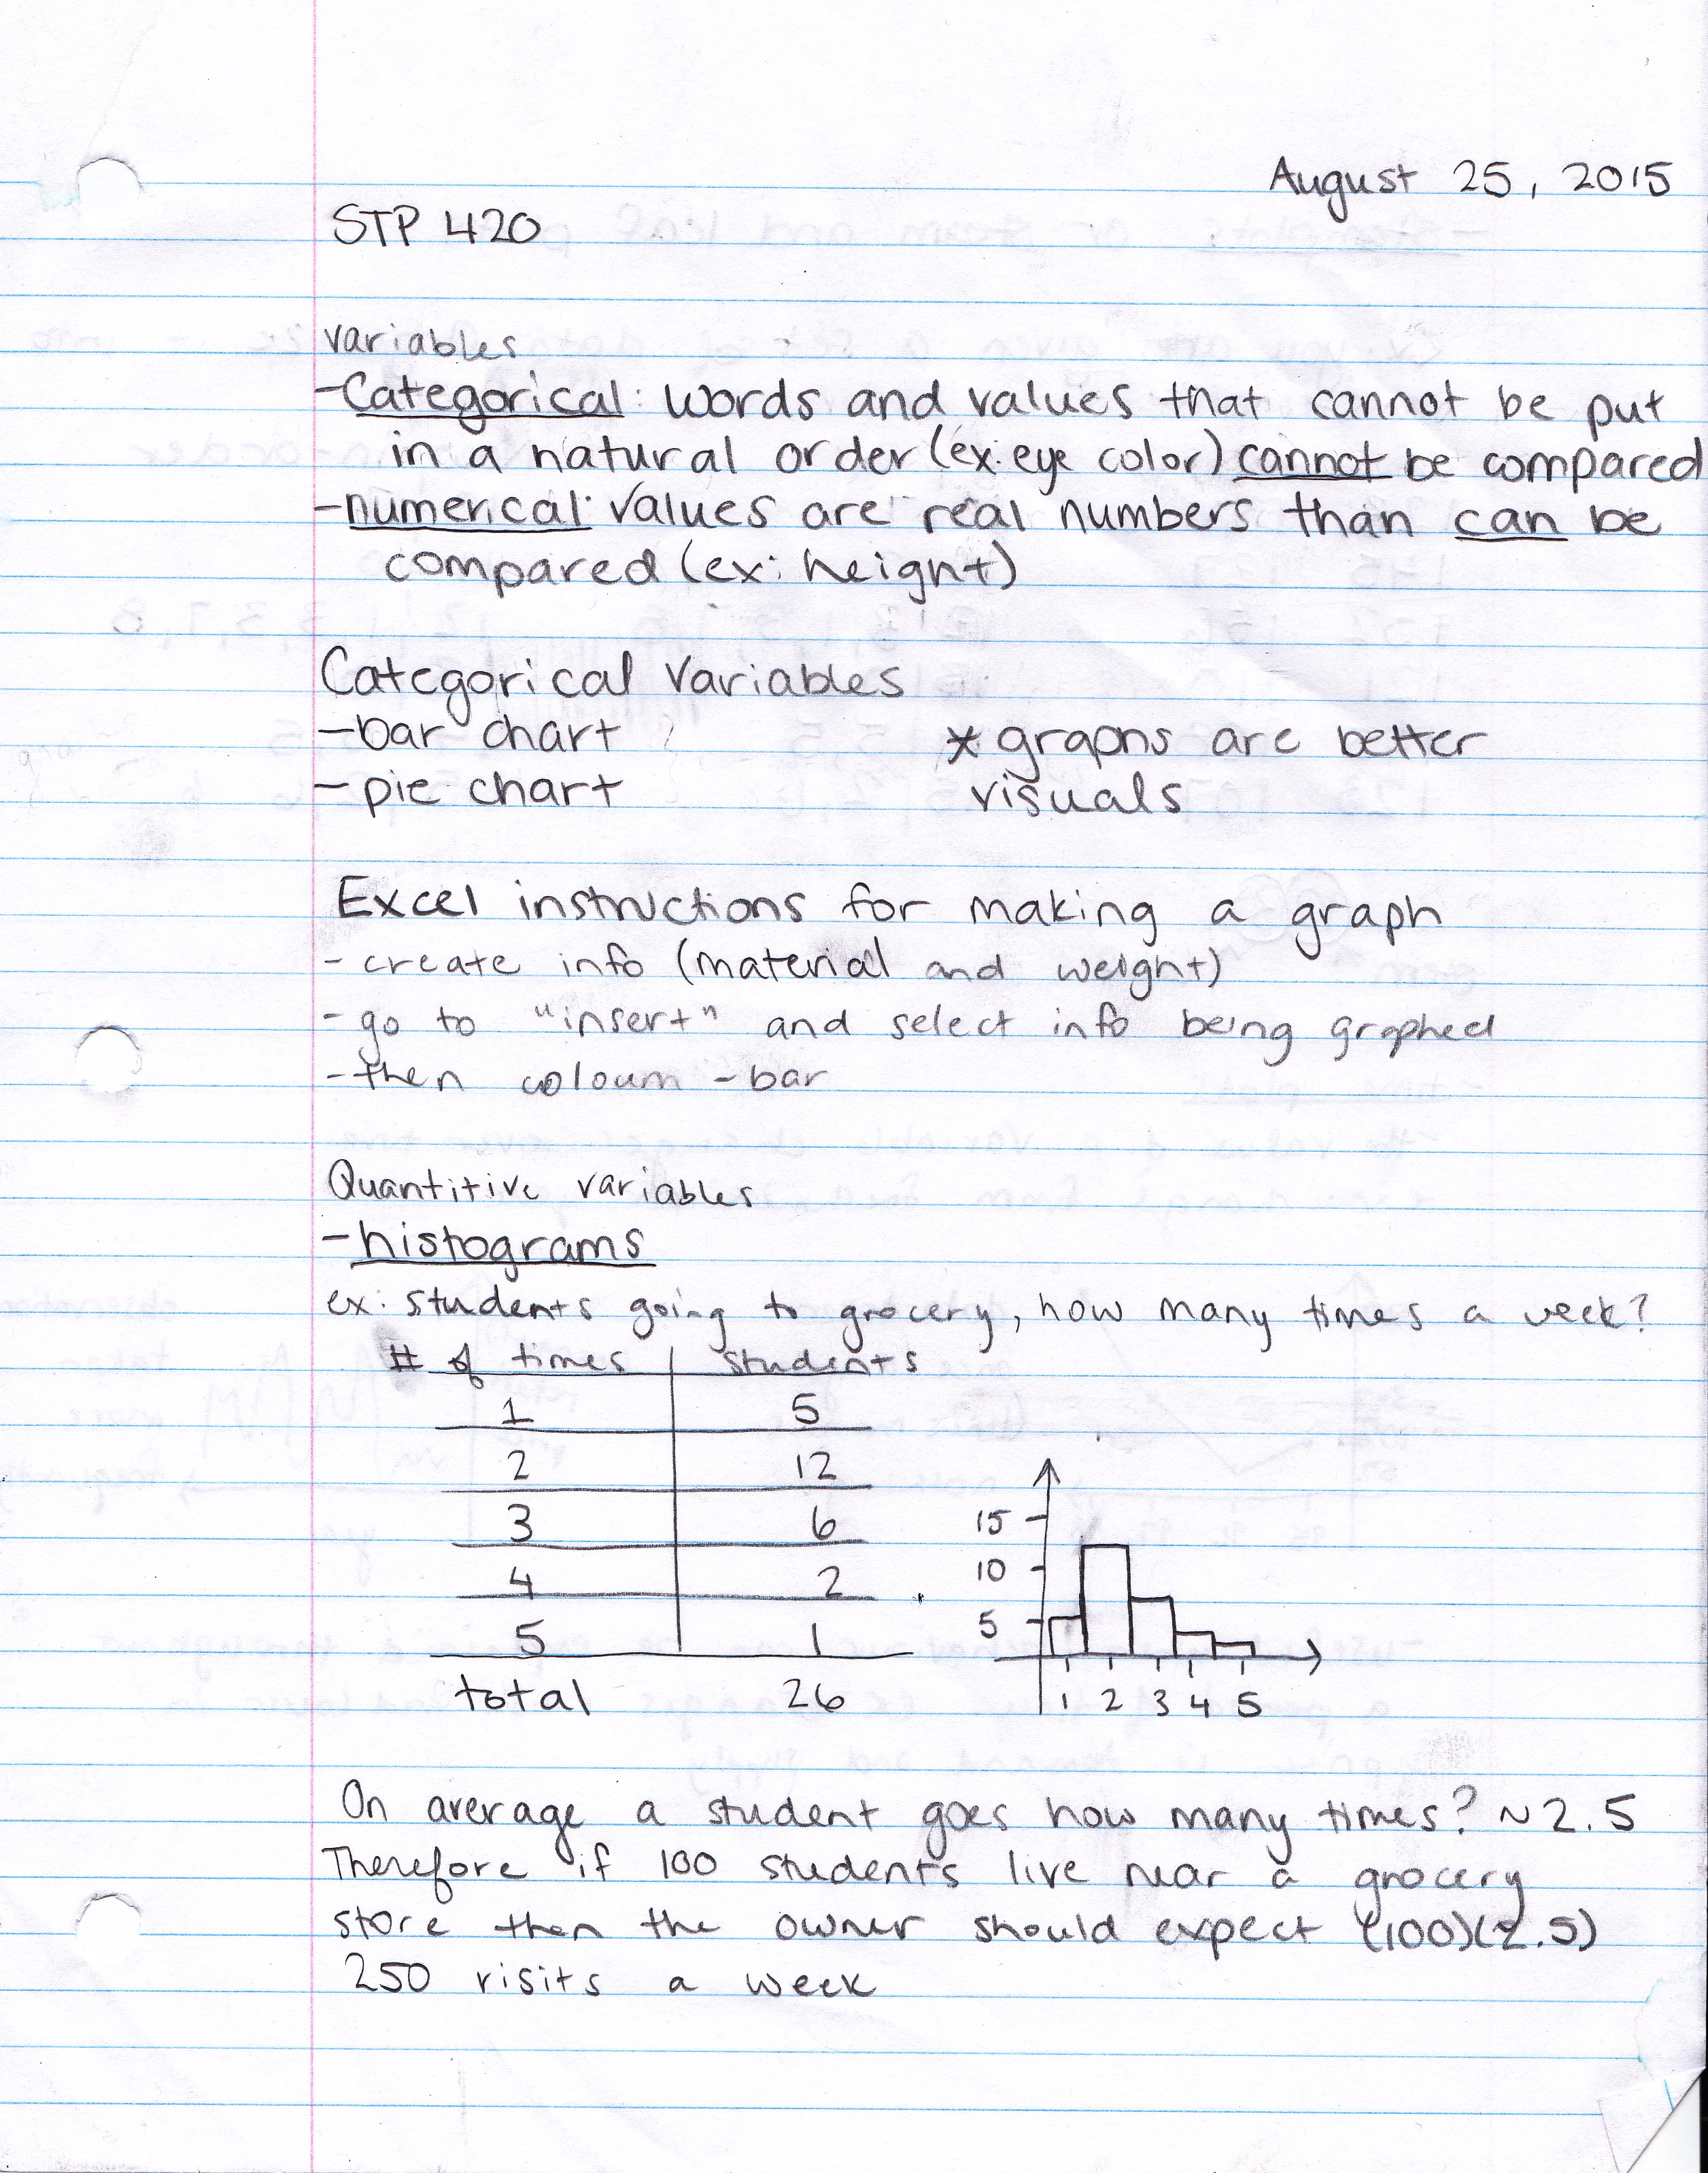 August 25, 2015
STP 420
variables
-Categorical: words and values that cannot be put
in a natural order (ex: eye color) cannot be compared
-numerical: values are real numbers than can be
compared (ex: height)
Categorical variables
-bar chart
* graphs are better
-pie chart
visuals
Excel instructions for making a graph
- create info (material and weight)
- go to "insert" and select info being graphed
- then coloum - bar
Quantitive variables
- histograms
ex: students going to grocery, how many times a week?
# of times students
1 5
2 12
3 6
4 2
5 1
total 26
15
10
5
1 2 3 4 5
On average a student goes how many times? ~2.5
Therefore if 100 students live near a grocery
store then the owner should expect (100)(2.5)
250 visits a week